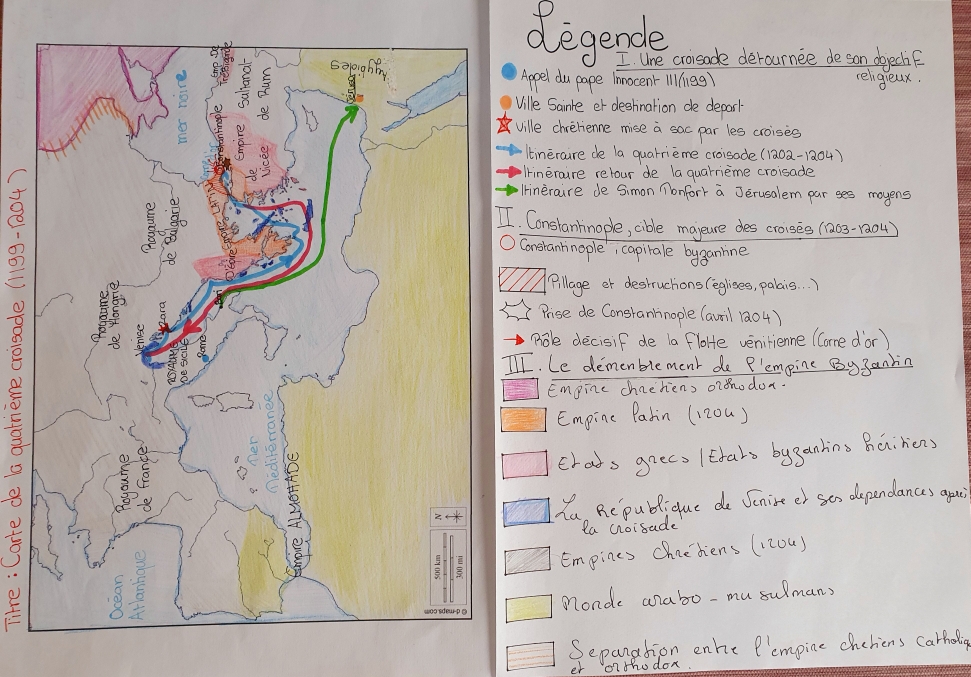 Titre : Carte de la quatrième croisade (1199-1204)
Océan
Atlantique
Royaume
de France
Mer
Méditerranée
Empire ALMOHADE
Royaume
de Hongrie
Venise
Zara
ROYAUME
DE SICILE
Rome
Bari
Royaume
de Bulgarie
mer noire
Constantinople
Empire
de
Nicée
Sultanat
de Rum
Emp. De
Trébizonde
Ayyubides
N
500 km
300 mi
© d-maps.com
Légende
I. Une croisade détournée de son objectif
religieux.
Appel du pape Innocent III (1199)
Ville Sainte et destination de depart
Ville chrétienne mise à sac par les croisés
Itinéraire de la quatrième croisade (1202-1204)
Itinéraire retour de la quatrième croisade
Itinéraire de Simon Monfort à Jérusalem par ses moyens
II. Constantinople, cible majeure des croisés (1203-1204)
Constantinople, capitale byzantine
Pillage et destructions (églises, palais...)
Prise de Constantinople (avril 1204)
Rôle décisif de la flotte vénitienne (Corne d'or)
III. Le démenbrement de l'empire Byzantin
Empire chrétiens orthodox.
Empire latin (1204)
Etats grecs / Etats byzantins héritiers
La République de Venise et ses dependances après
la croisade
Empires Chrétiens (1204)
Monde arabo-musulmans
Separation entre l'empire chetiens Catholiq
et orthodox.